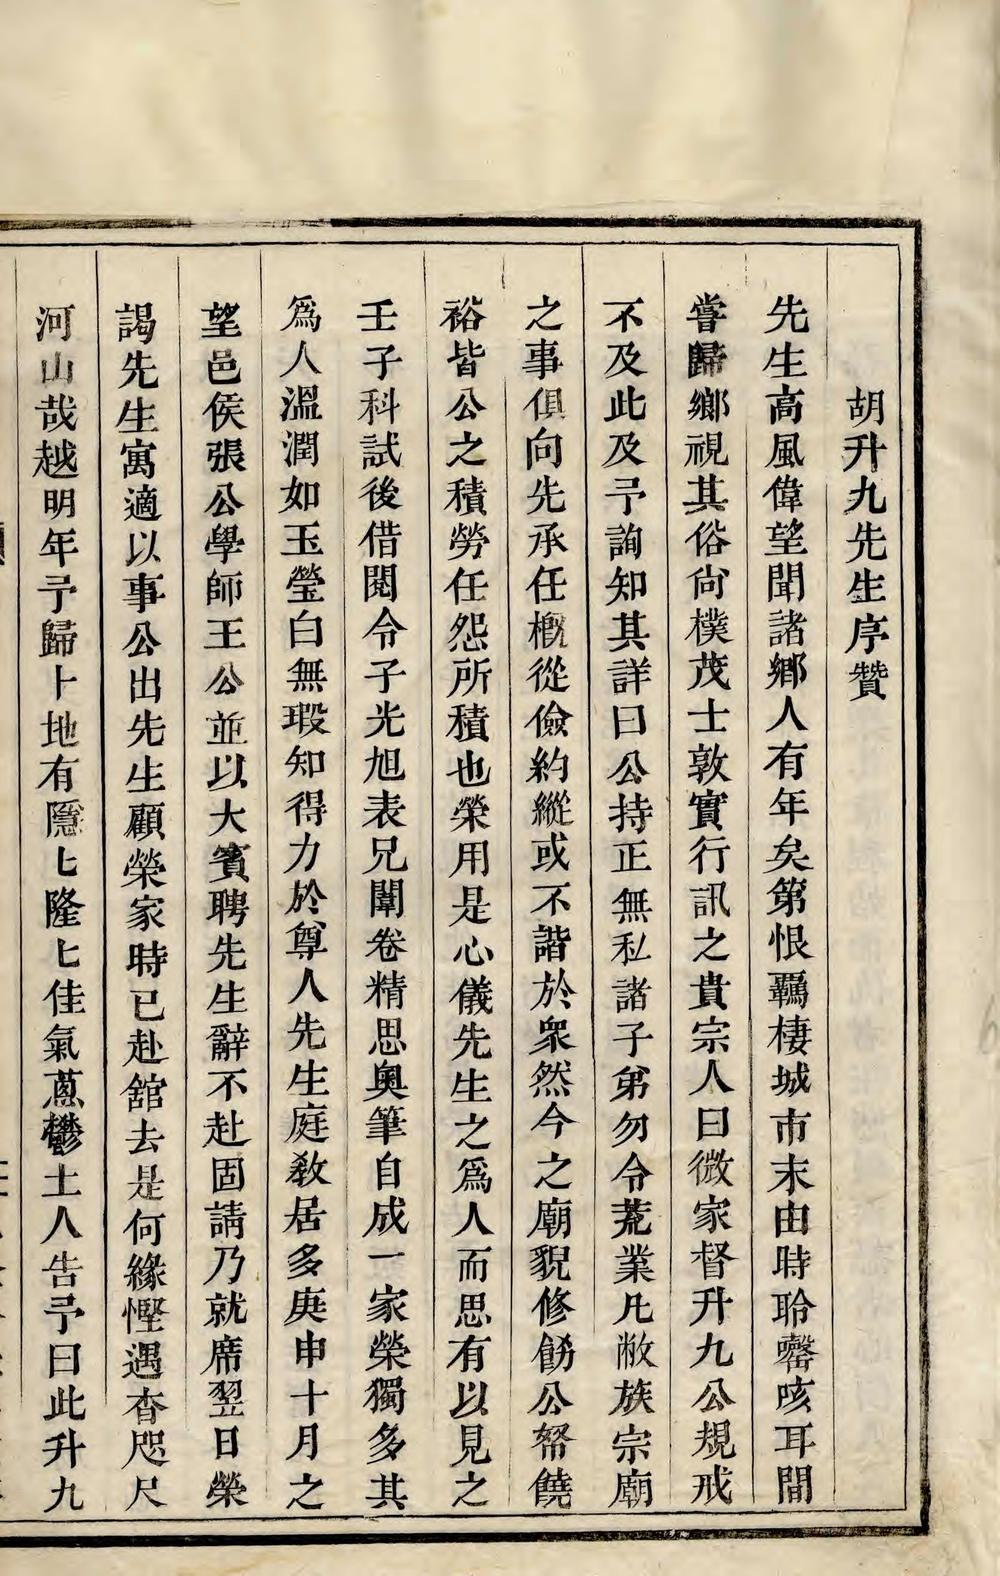 胡升九先生序贊
先生高風偉望聞諸鄉人有年矣第恨羈棲城市末由時聆謦咳耳間
嘗歸鄉視其俗尙樸茂士敦實行訊之貴宗人曰微家督升九公規戒
不及此及予詢知其詳曰公持正無私諸子弟勿令荒業凡敝族宗廟
之事俱向先承任概從儉約縱或不諧於衆然今之廟貌修飭公帑饒
裕皆公之積勞任怨所積也榮用是心儀先生之爲人而思有以見之
壬子科試後借閱令子光旭表兄闈卷精思奧筆自成一家榮獨多其
爲人溫潤如玉瑩白無瑕知得力於尊人先生庭教居多庚申十月之
望邑侯張公學師王公並以大賓聘先生辭不赴固請乃就席翌日榮
謁先生寓適以事公出先生顧榮家時已赴舘去是何緣慳遇杳咫尺
河山哉越明年予歸卜地有隱匕隆匕佳氣蔥鬱土人告予曰此升九